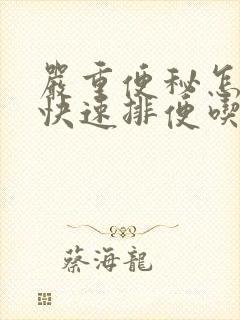 嚴重便秘怎
快速排便喫
蔡海龍